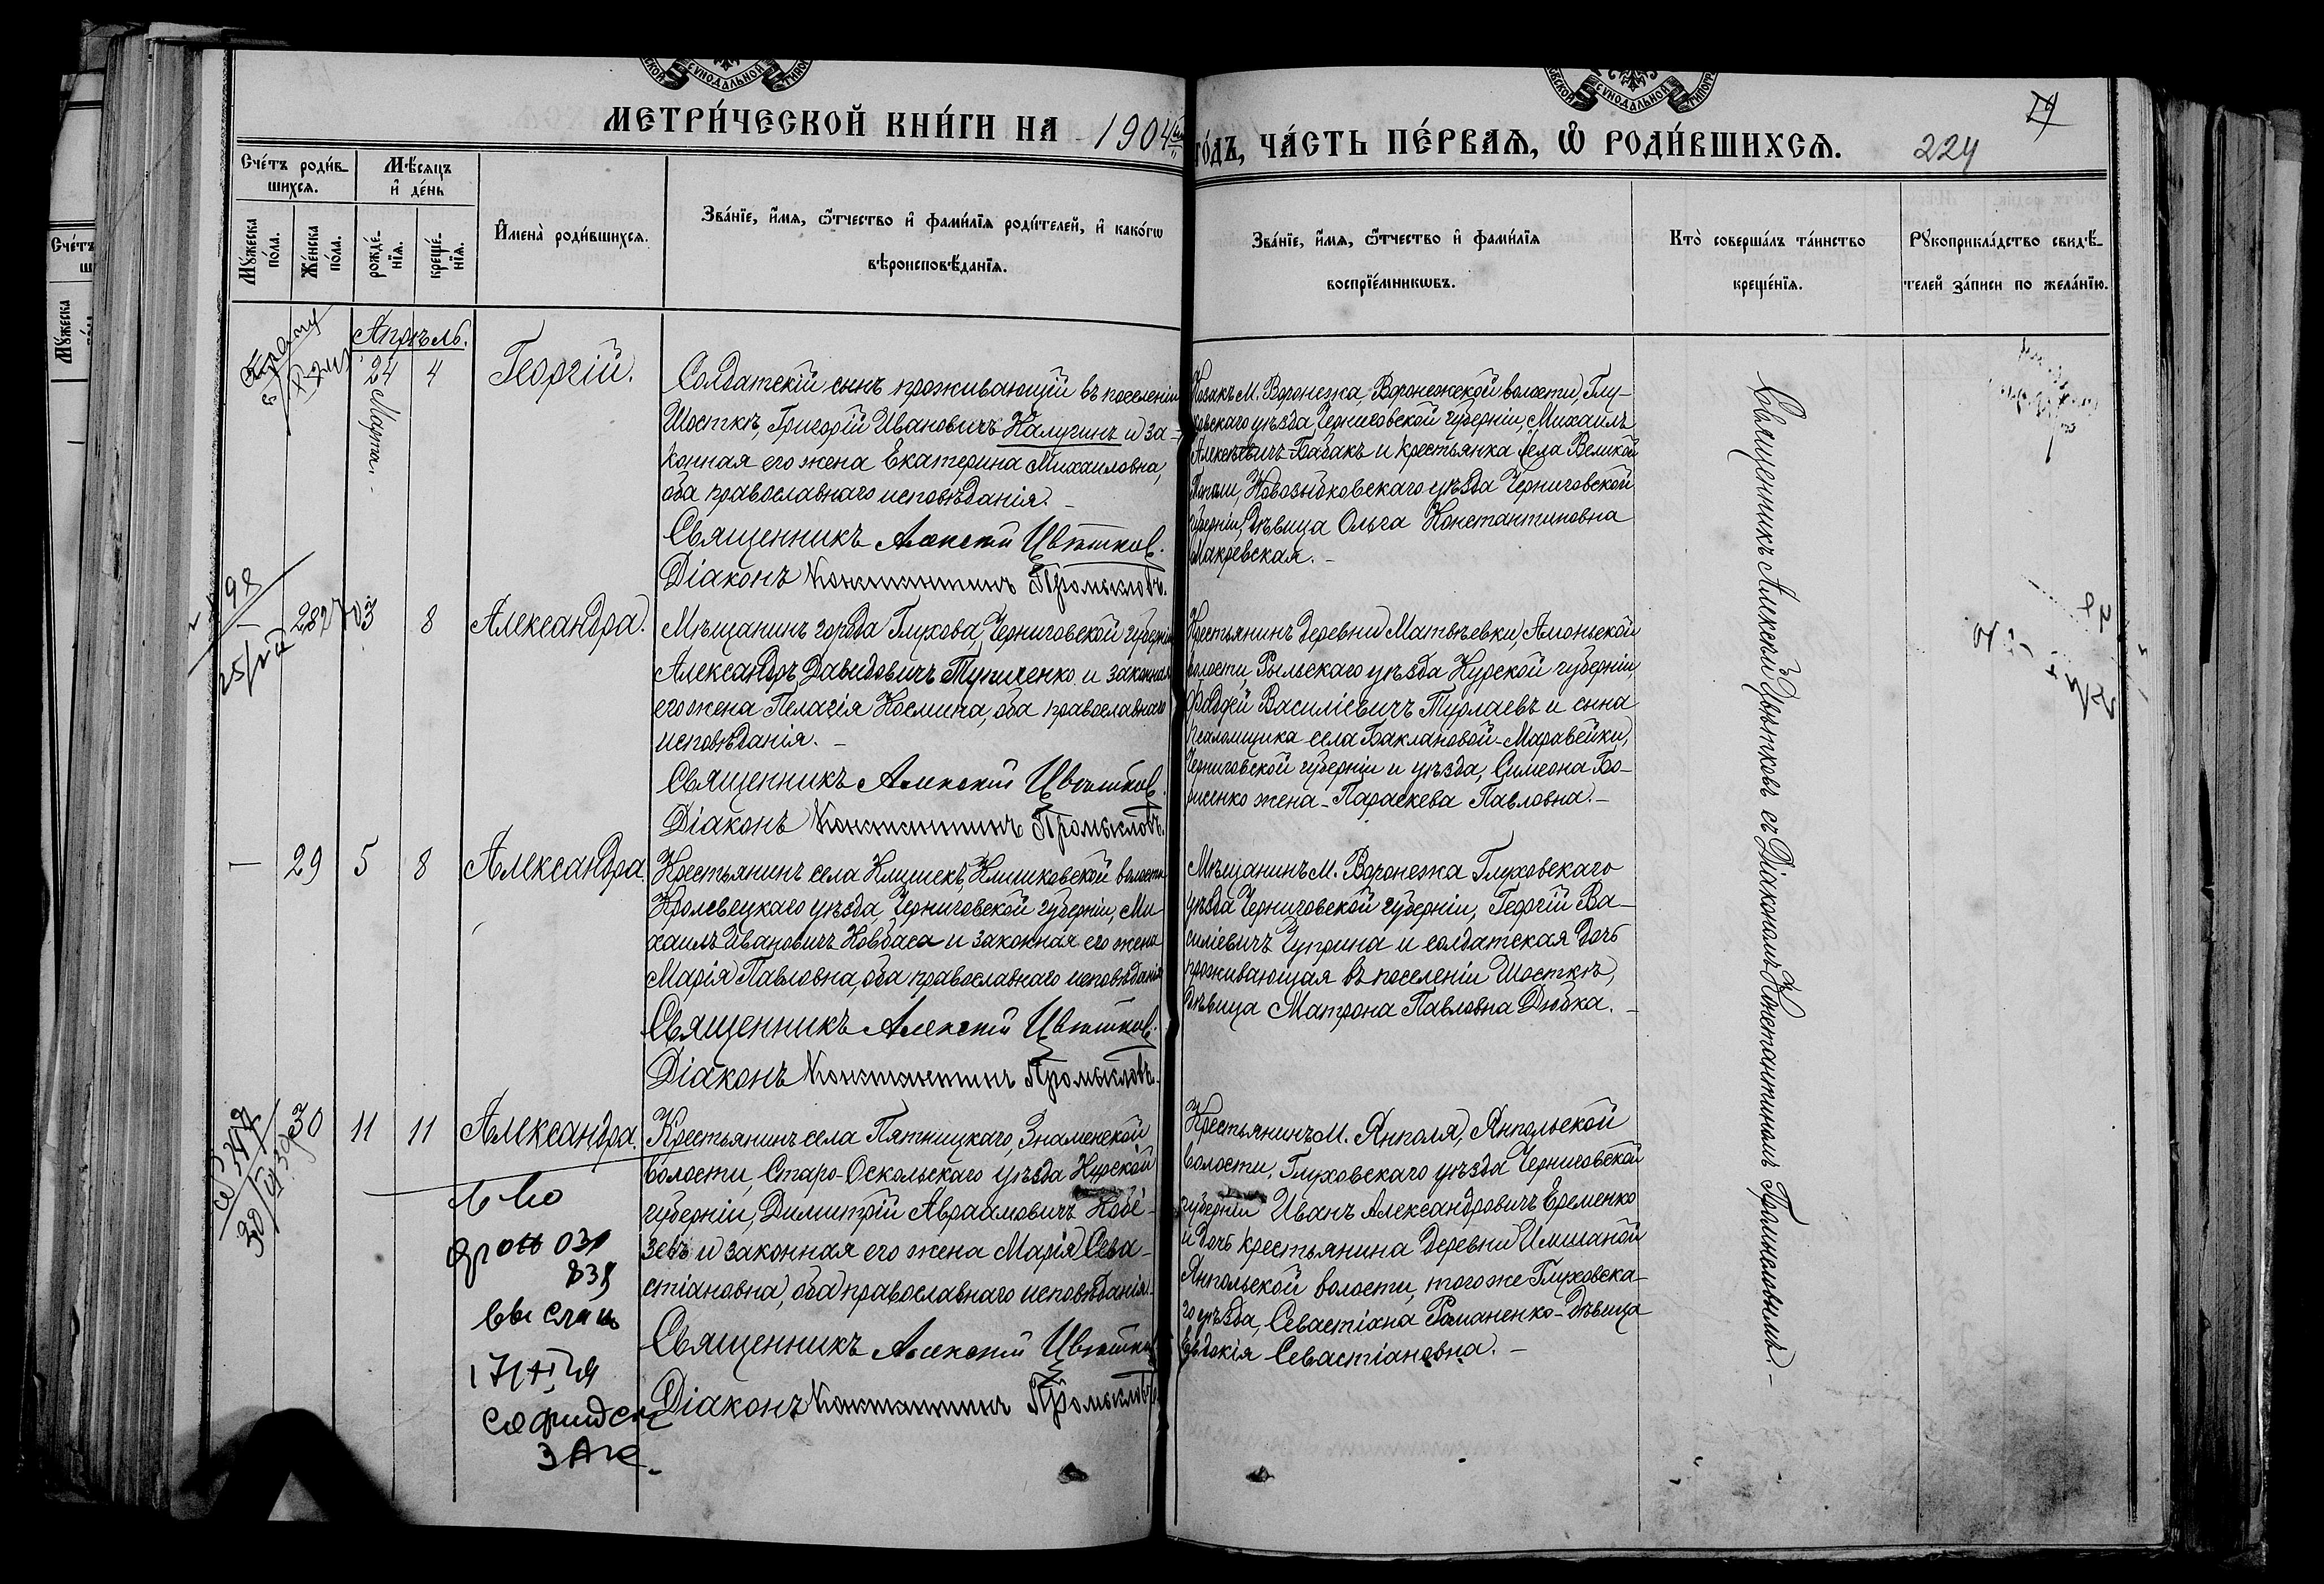 МЕТРИ́ЧЕСКОЙ КНИ́ГИ НА 1904
го́дъ, ЧА́СТЬ ПЕ́РВАЯ, Ѡ҆ РОДИ́ВШИХСЯ.
224
Сче́тъ роди́в-
шихся.
Мѣ́сяцъ
и҆ де́нь
Мꙋ́жеска
по́ла.
Же́нска
по́ла.
рожде́-
нїя.
креще́-
нїя.
И҆мена̀ роди́вшихся.
Зва́нїе, и҆́мя, ѻ҆́тчество и҆ фами́лїя роди́телей, и҆ како́гѡ
вѣроисповѣ́данїя.
Зва́нїе, и҆́мя, ѻ҆́тчество и҆ фами́лїя
воспрїе́мникѡвъ.
Кто̀ соверша́лъ та́инство
креще́нїя.
Рꙋкоприкла́дство свидѣ́-
телей за́писи по жела́нїю.
Апрѣль.
24 Марта.
4
Георгій.
Солдатскій сынъ проживающій въ поселеніи
Шосткѣ, Григорій Ивановичъ Калугинъ и за-
конная его жена Екатерина Михаиловна,
оба православнаго исповѣданія. -
Священникъ Алексій Цвѣтков.
Діаконъ Константинъ Промысловъ.
Козакъ М. Воронежа Воронежской волости, Глу-
ховскаго уѣзда, Черниговской губерніи, Михаилъ
Алексѣевичъ Бабакъ и крестьянка села Великой
Топали, Новозыбковскаго уѣзда Черниговской
губерніи, дѣвица Ольга Константиновна
Макревская. -
Священникъ Алексѣй Цвѣтковъ съ Діакономъ Константиномъ Промысловымъ. -
28
3
8
Александра.
Мѣщанинъ города Глухова, Черниговской губерніи
Александръ Давидовичъ и законная
его жена Пелагія Космина, оба православнаго
исповѣданія. -
Священникъ Алексій Цвѣтков.
Діаконъ Константинъ Промысловъ.
Крестьянинъ деревни Матвѣевки, Амонской
волости, Рыльскаго уѣзда Курской губерніи,
Фаддей Василіевичъ Турлаевъ и сына
псаломщика села Баклановой-Маравейки,
Черниговской губерніи и уѣзда, Симеона Бо-
рисенко жена - Параскева Павловна. -
-
29
5
8
Александра.
Крестьянинъ села Клишекъ, Клишковской волости
Кролевецкаго уѣзда, Черниговской губерніи, Ми-
хаилъ Ивановичъ Ковбаса и законная его жена
Марія Павловна, оба православнаго исповѣданія
Священникъ Алексій Цвѣтков.
Діаконъ Константинъ Промысловъ.
Мѣщанинъ М. Воронежа Глуховскаго
уѣзда Черниговской губерніи, Георгій Ва-
силіевичъ Чуприна и солдатская дочь
проживающая въ поселеніи Шосткѣ,
дѣвица Матрона Павловна Дюбка. -
30
11
11
Александра.
Крестьянинъ села Пятницкаго, Знаменской
волости, Старо-Оскольскаго уѣзда Курской
губерніи, Димитрій Авраамовичъ Кобе-
зевъ и законная его жена Марія Сева-
стіановна, оба православнаго исповѣданія.
Священникъ Алексій Цвѣтков
Діаконъ Константинъ Промысловъ
Крестьянинъ М. Янполя, Янпольской
волости, Глуховскаго уѣзда Черниговской
губерніи Иванъ Александровичъ Еременко
и дочь крестьянина деревни Имшаной
Янпольской волости, того же Глуховска-
го уѣзда, Севастіана Романенко - дѣвица
Евдокія Севастіановна. -
выслан